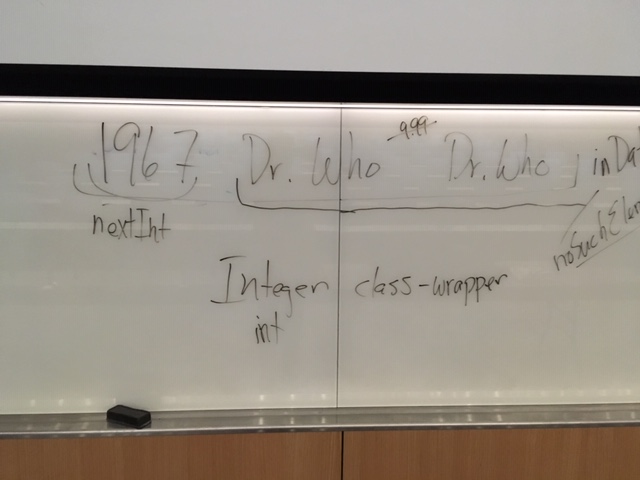 1967 Dr. Who -9.99- Dr. Who inDat
nextInt
noSuchElem
Integer class-wrapper
int